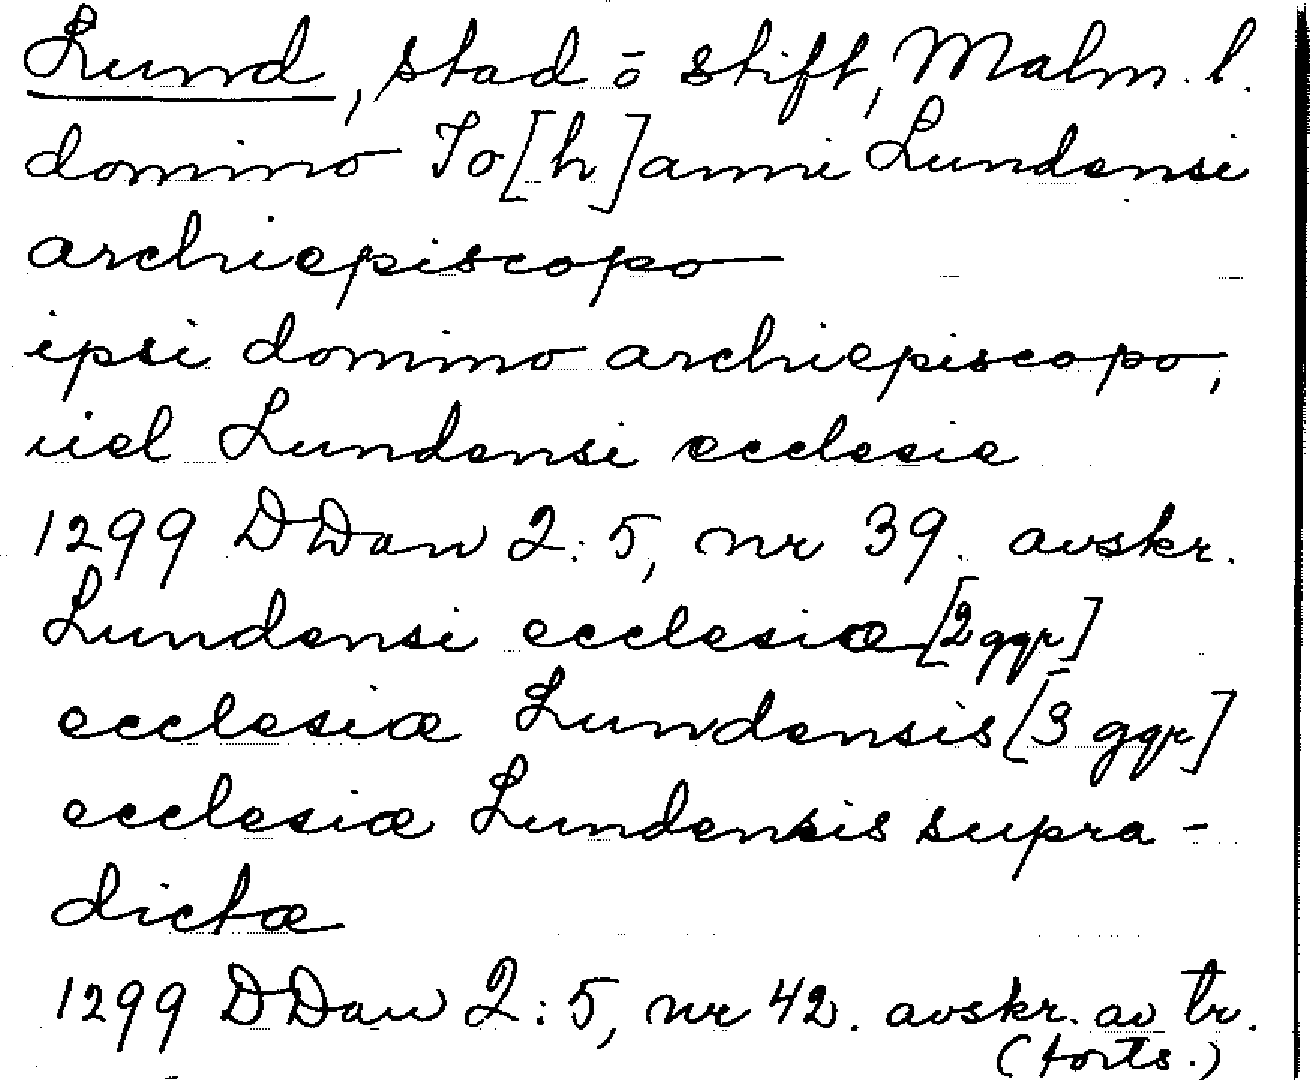 Lund, stad ō stift, Malm. l.
domino Jo[h]anni Lundensi
archiepiscopo
ipsi domino archiepiscopo,
uel Lundensi ecclesie
1299 DDan 2:5, nr 39. avskr.
Lundensi ecclesiæ [2 ggr]
ecclesiæ Lundensis [3 ggr]
ecclesiæ Lundensis supra-
dictæ
1299 DDan 2:5, nr 42. avskr. av tr.
(forts.)